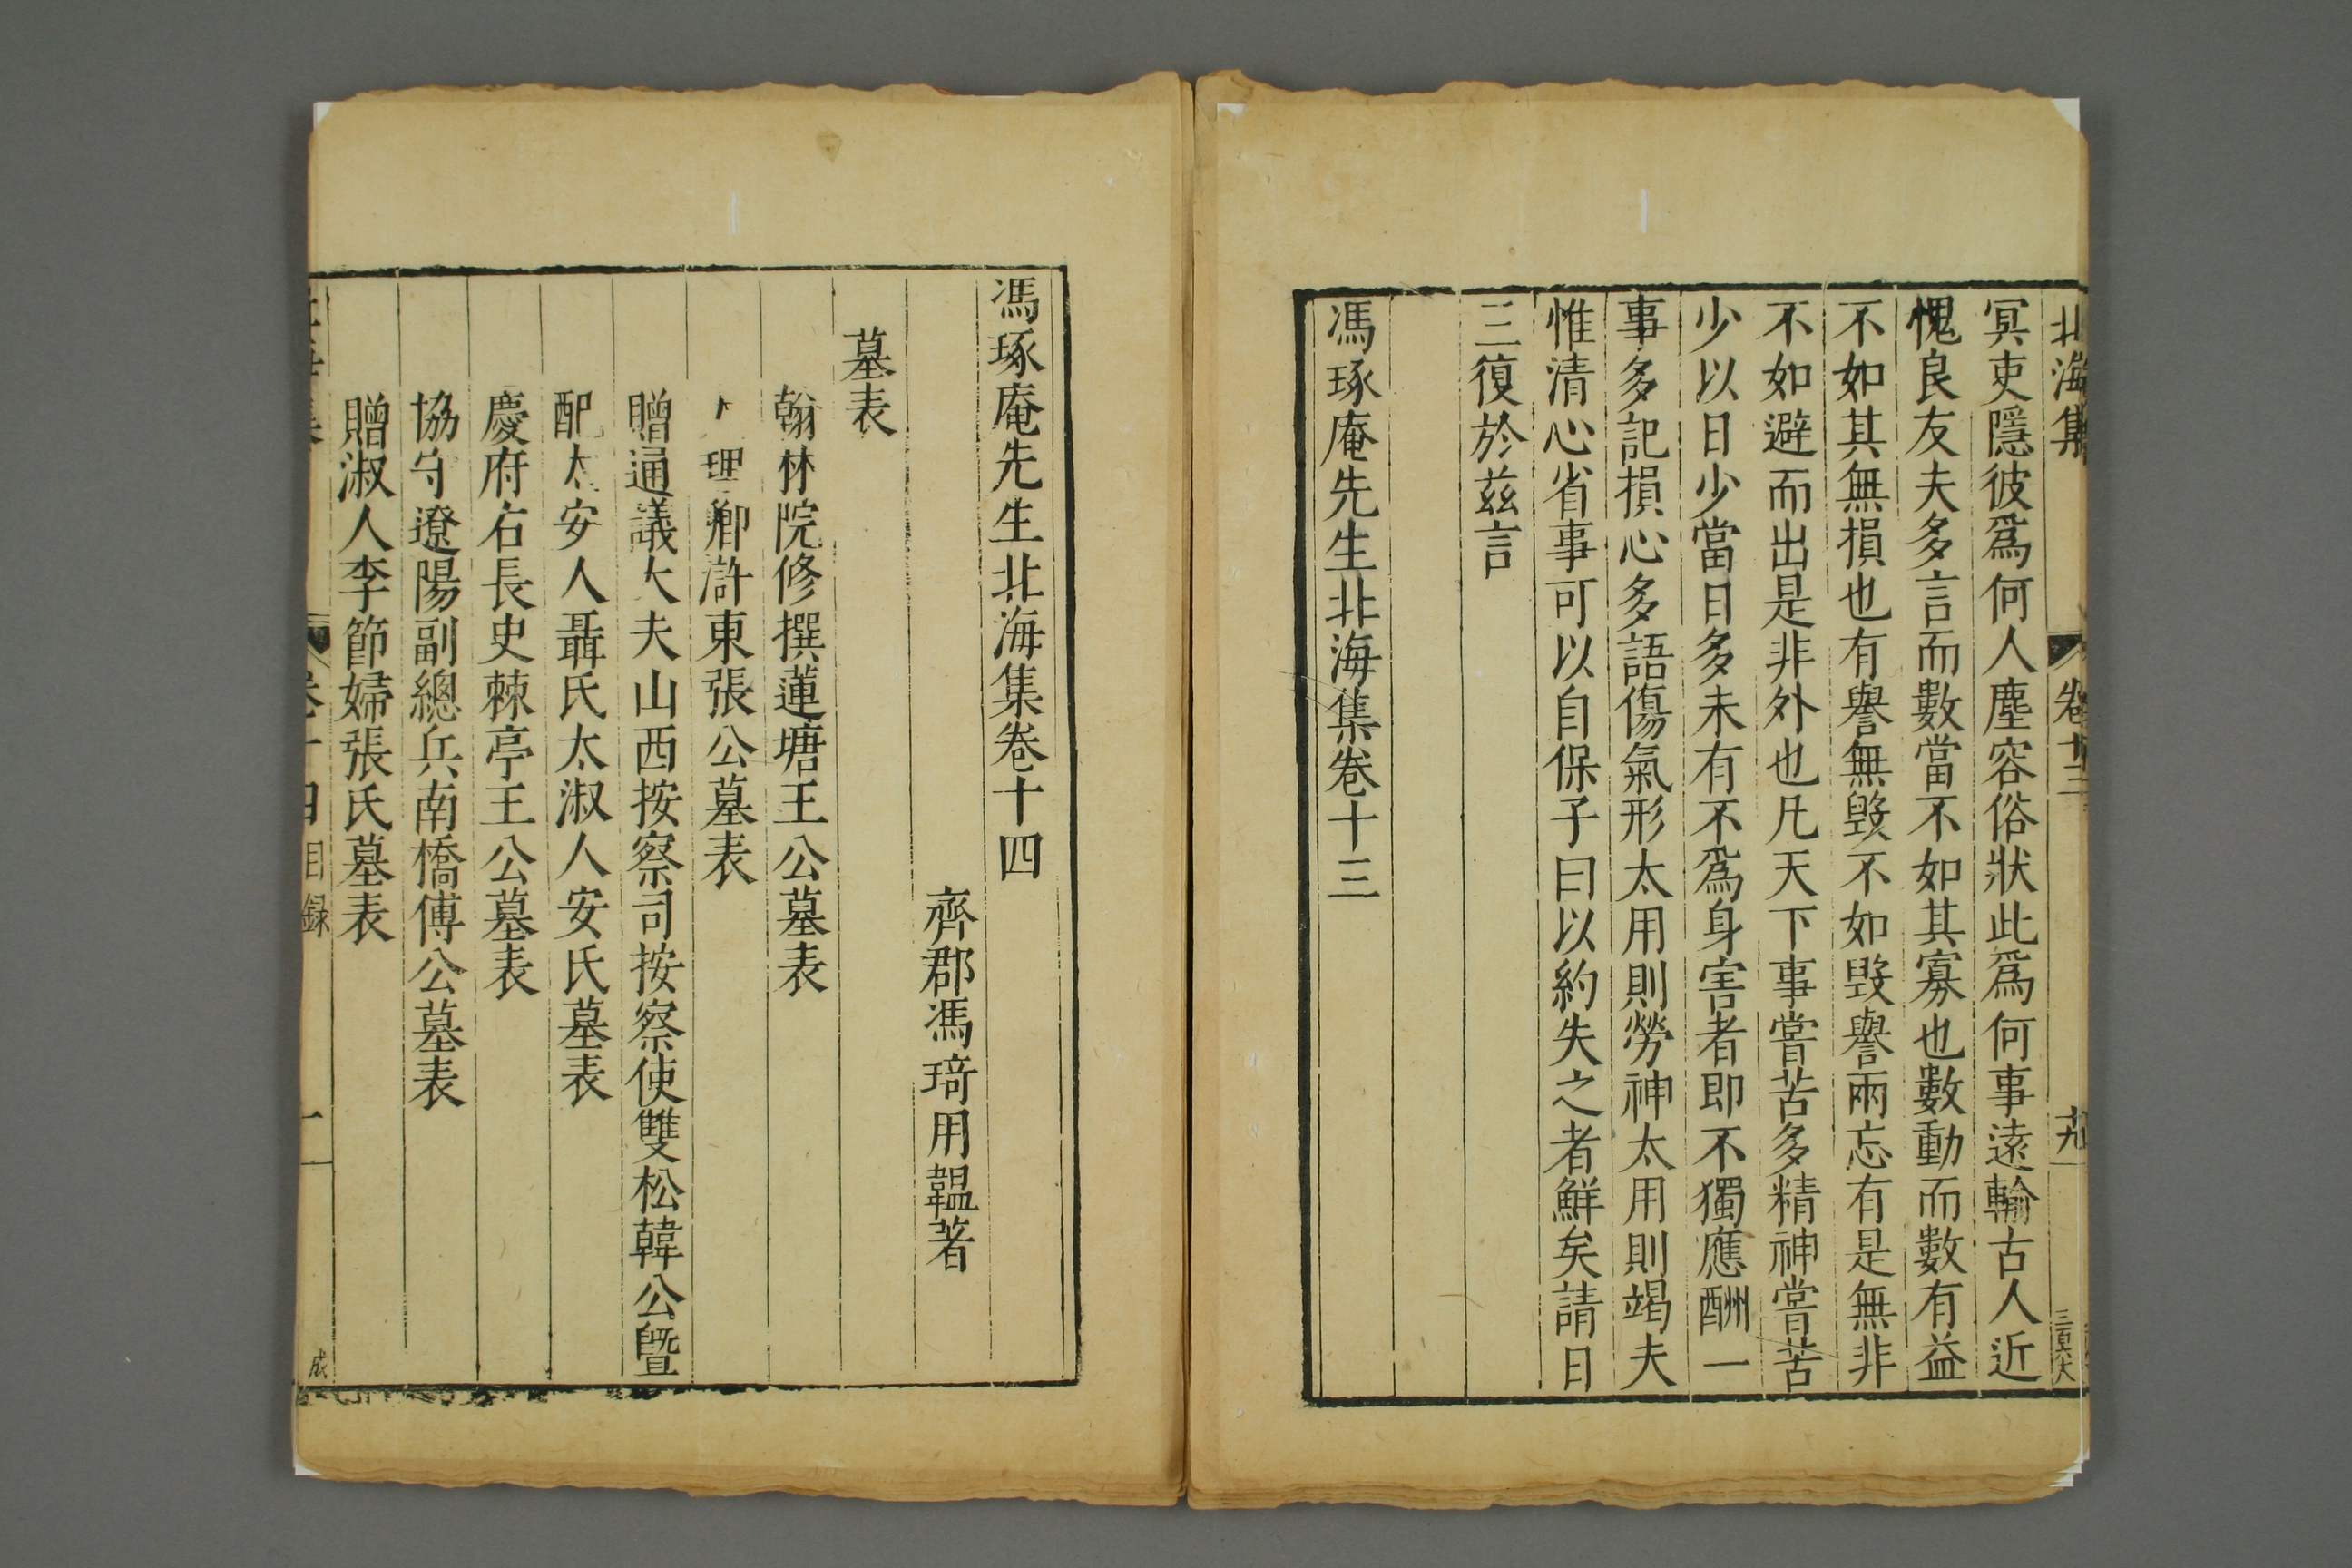 北海集 卷十三 十九
冥吏隱彼爲何人塵容俗狀此爲何事遠輸古人近
愧良友夫多言而數當不如其寡也數動而數有益
不如其無損也有譽無毀不如毀譽兩忘有是無非
不如避而出是非外也凡天下事嘗苦多精神嘗苦
少以日少當日多未有不爲身害者即不獨應酬一
事多記損心多語傷氣形太用則勞神太用則竭夫
惟清心省事可以自保子曰以約失之者鮮矣請日
三復於茲言
馮琢庵先生北海集卷十三
馮琢庵先生北海集卷十四
齊郡馮琦用韞著
墓表
翰林院修撰蓮塘王公墓表
理卿滸東張公墓表
贈通議大夫山西按察司按察使雙松韓公暨
配太安人聶氏太淑人安氏墓表
慶府右長史棘亭王公墓表
協守遼陽副總兵南橋傅公墓表
贈淑人李節婦張氏墓表
目録 一
成